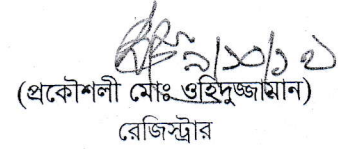 ৯/১০/১৭
(প্রকৌশলী মোঃ ওহিদুজ্জামান)
রেজিস্ট্রার